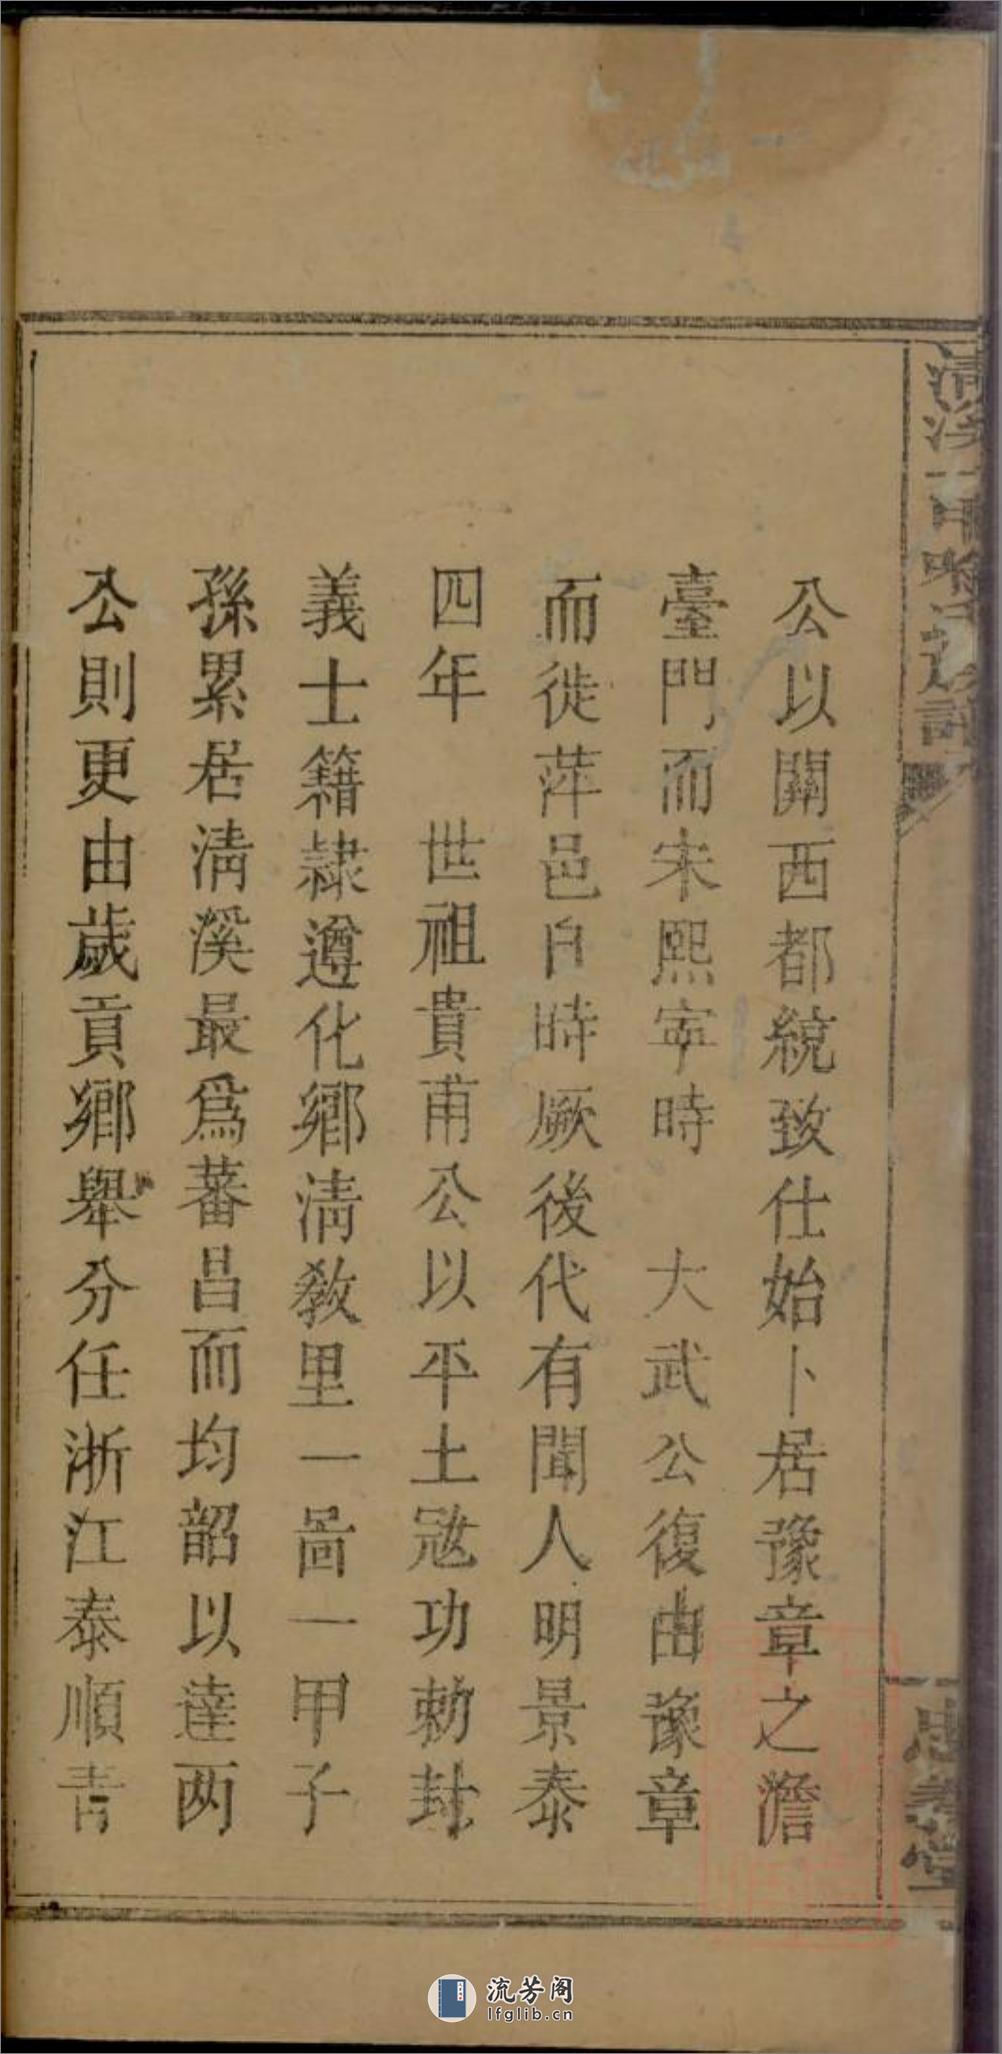 公以關西都統致仕始卜居豫章之澹
臺門而宋熙寧時　大武公復由豫章
而徙萍邑自時厥後代有聞人明景泰
四年　世祖貴甫公以平土寇功勅封
義士籍隷遵化鄉清教里一啚一甲子
孫累居清溪最爲蕃昌而均韶以達两
公則更由歲貢鄉舉分任浙江泰順青
流芳阁
lfglib.cn